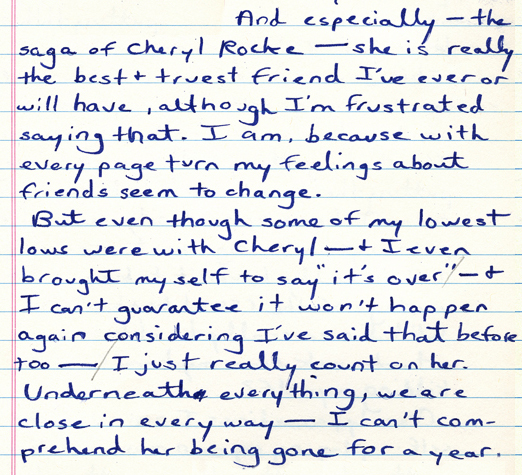 And especially — the
saga of Cheryl Rocke — she is really
the best + truest friend I've ever or
will have, although I'm frustrated
saying that. I am, because with
every page turn my feelings about
friends seem to change.
But even though some of my lowest
lows were with Cheryl — + I even
brought my self to say "it's over" — +
I can't guarantee it won't happen
again considering I've said that before
too — I just really count on her.
Underneath everything, we are
close in every way — I can't com-
prehend her being gone for a year.